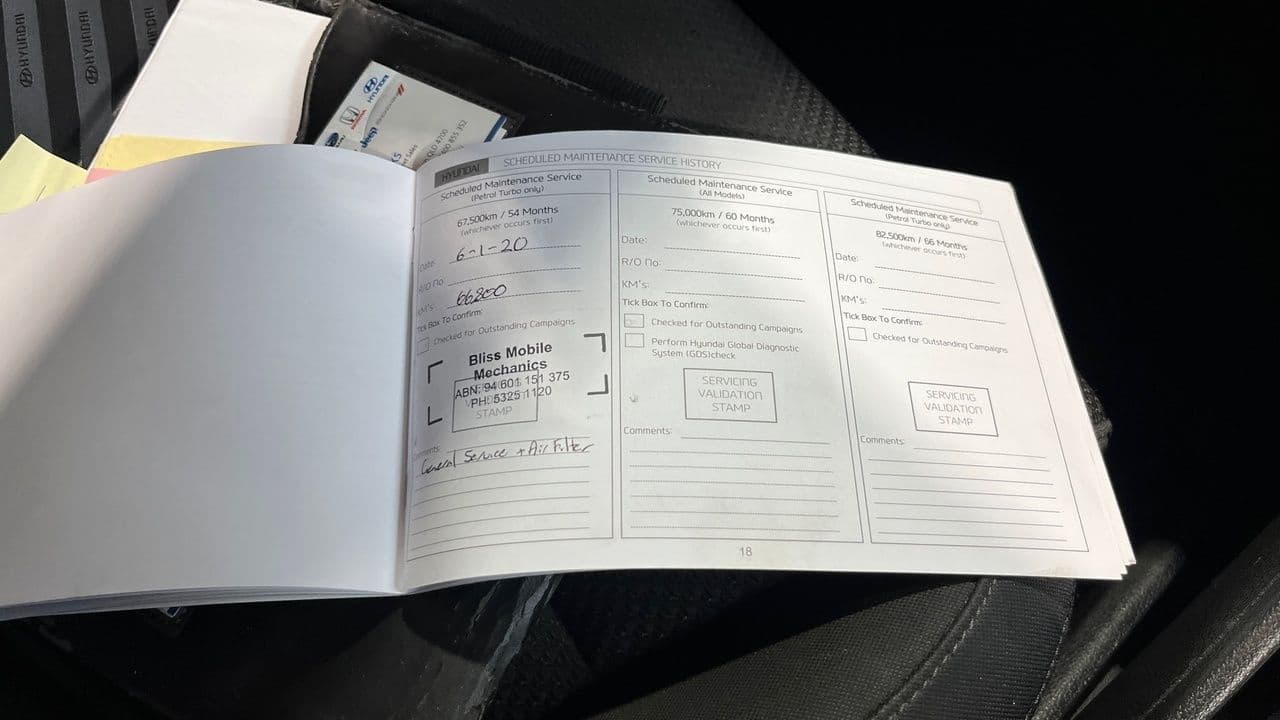 HYUNDAI
HYUNDAI
HYUNDAI
HYUNDAI
HONDA
Jeep
Sales
QLD 4700
855 352
HYUNDAI
SCHEDULED MAINTENANCE SERVICE HISTORY
Scheduled Maintenance Service
(Petrol Turbo only)
67,500km / 54 Months
(whichever occurs first)
Date: 6-1-20
R/O No:
KM's: 66800
Tick Box To Confirm:
Checked for Outstanding Campaigns
Bliss Mobile
Mechanics
ABN: 94 601 151 375
PH: 5325 1120
STAMP
Comments:
General Service + Air Filter
Scheduled Maintenance Service
(All Models)
75,000km / 60 Months
(whichever occurs first)
Date:
R/O No:
KM's:
Tick Box To Confirm:
Checked for Outstanding Campaigns
Perform Hyundai Global Diagnostic
System (GDS)check
SERVICING
VALIDATION
STAMP
Comments:
Scheduled Maintenance Service
(Petrol Turbo only)
82,500km / 66 Months
(whichever occurs first)
Date:
R/O No:
KM's:
Tick Box To Confirm:
Checked for Outstanding Campaigns
SERVICING
VALIDATION
STAMP
Comments:
18